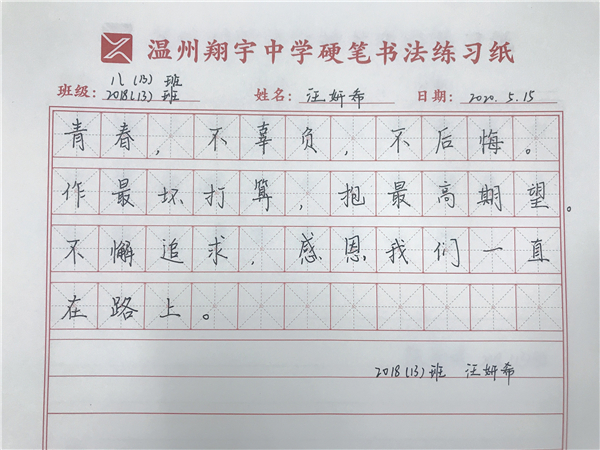 温州翔宇中学硬笔书法练习纸
八(13)班
班级：2018(13)班 姓名：汪妍希 日期：2020.5.15
青春，不辜负，不后悔。
作最坏打算，抱最高期望。
不懈追求，感恩我们一直
在路上。
2018(13)班 汪妍希